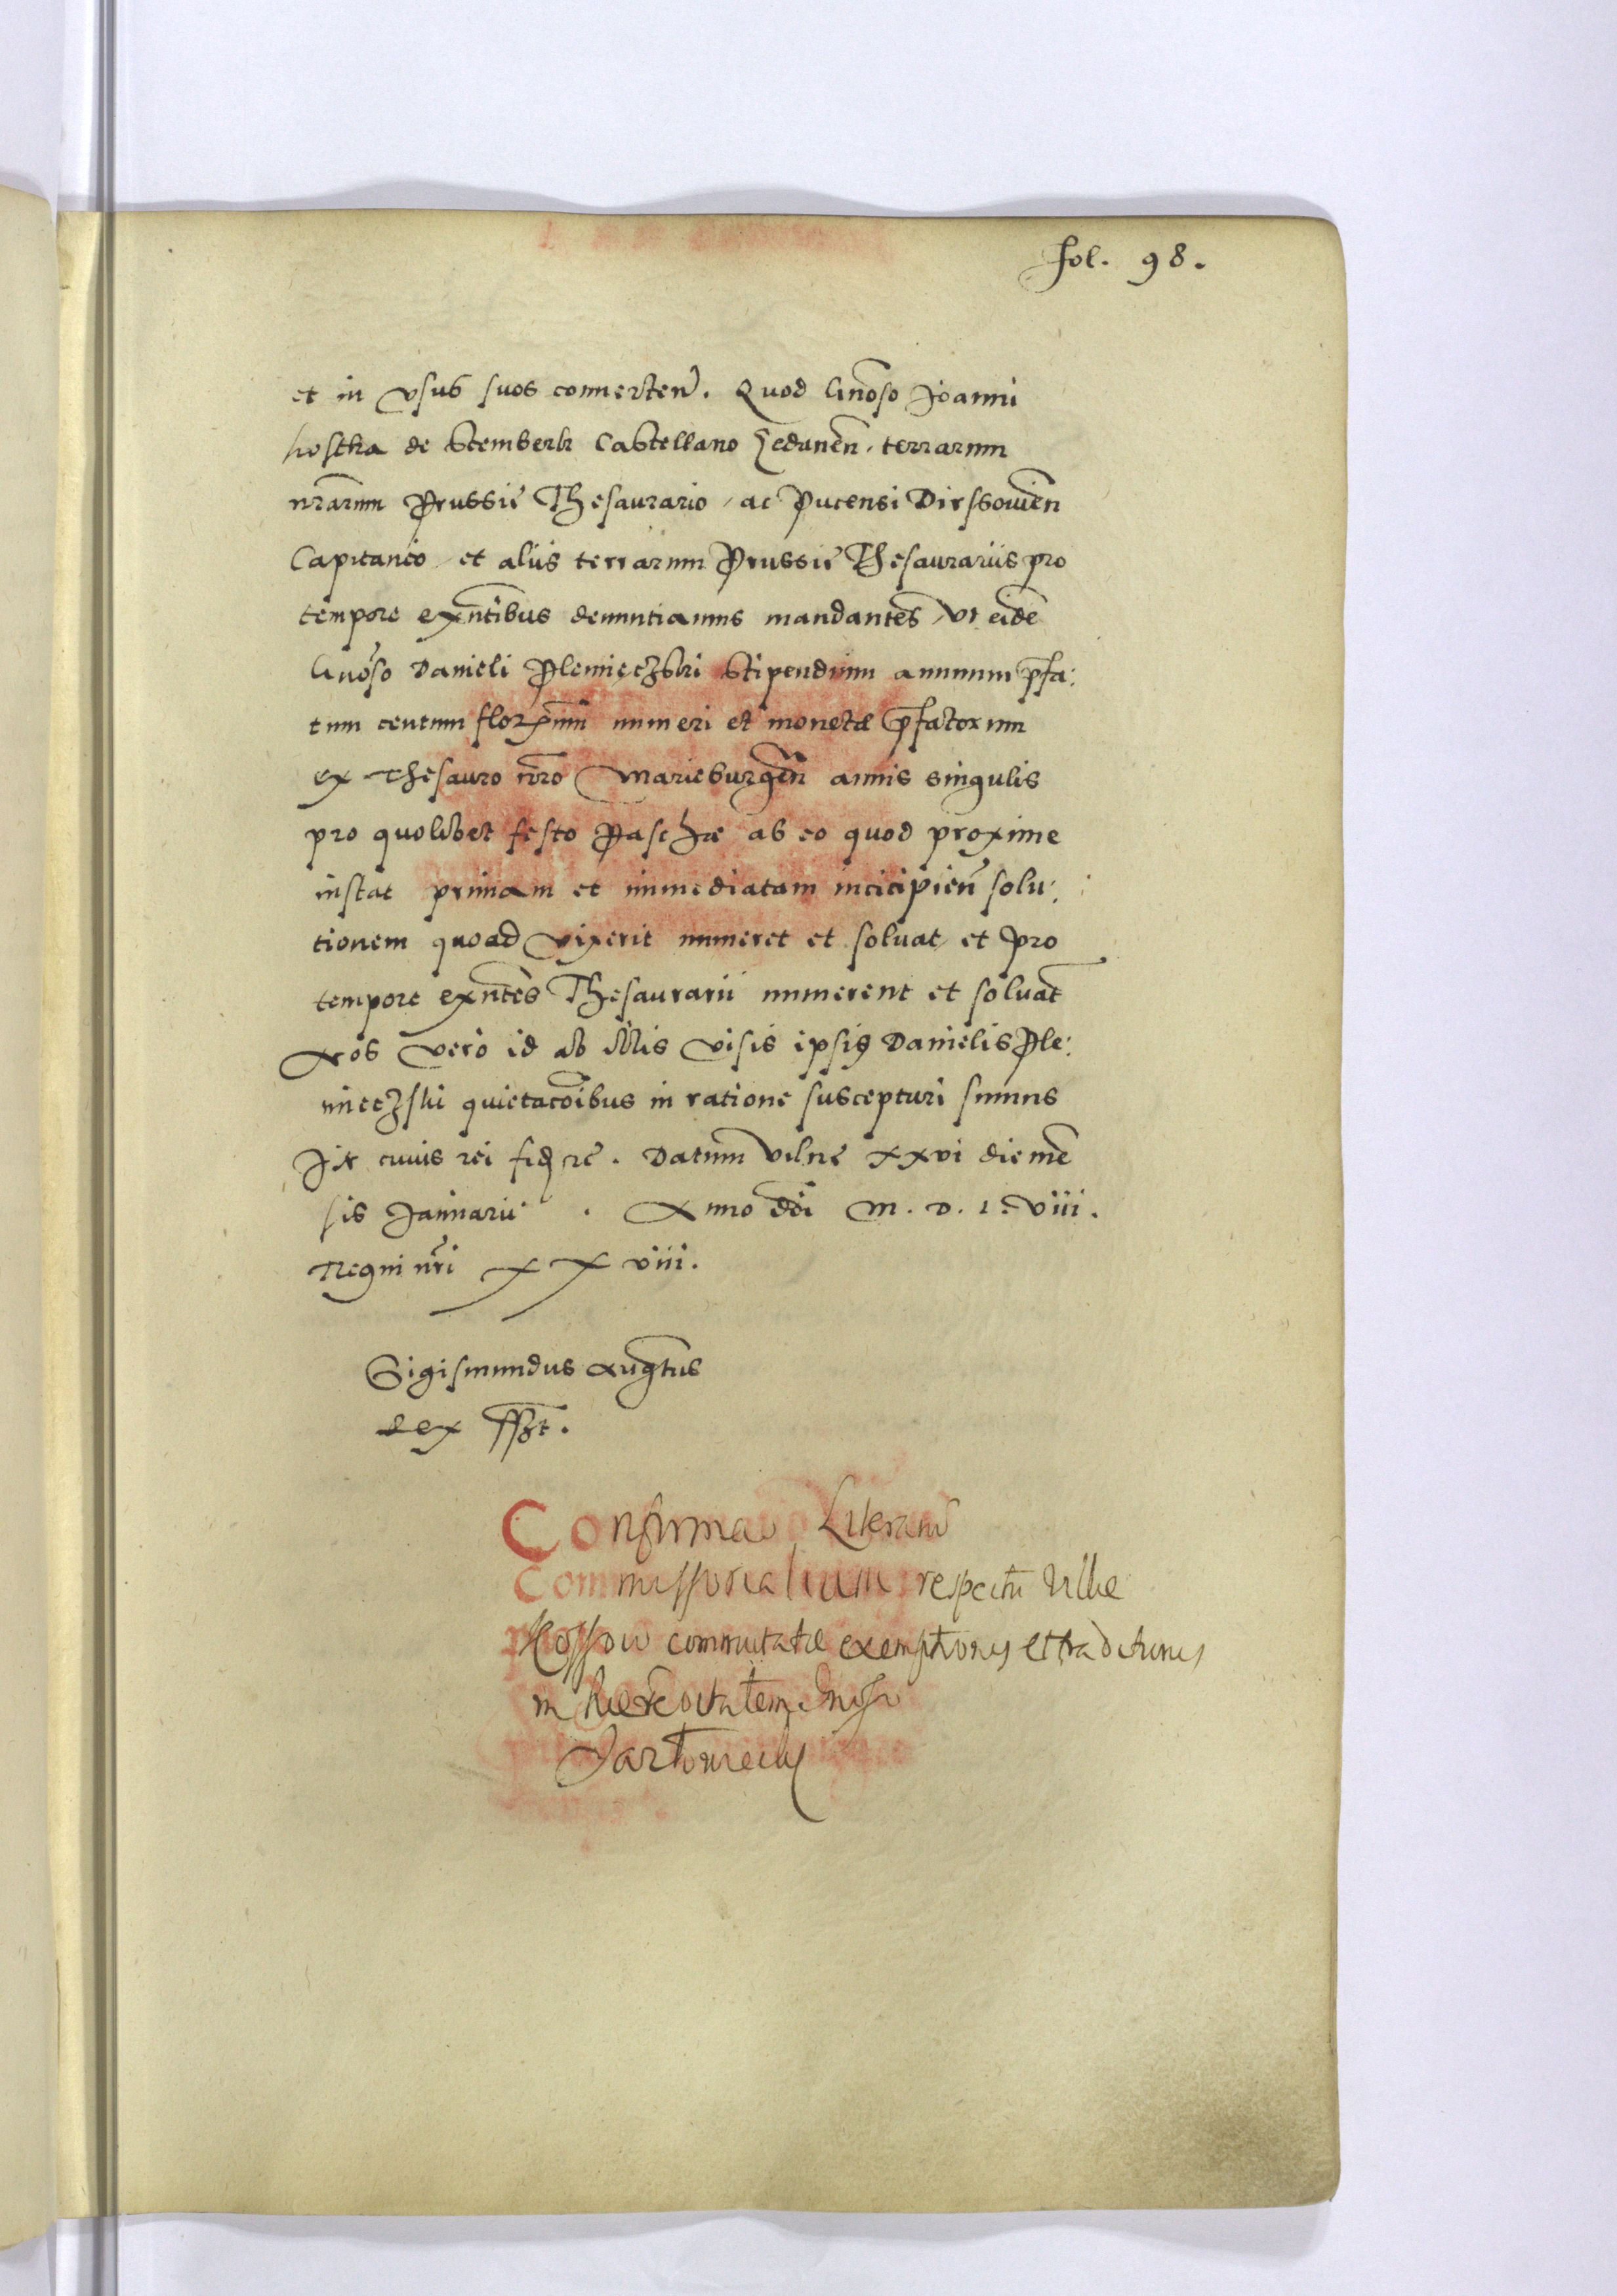 fol. 98.
et in vsus suos conuerten. Quod Gnoso Joanni
kostka de Stemberk Castellano Gedanen. terrarum
nrarum Prussie Thesaurario, ac Pucensi Dirssouien
Capitaneo, et aliis terrarum Prussie Thesaurariis pro
tempore exntibus denuntiamus mandantes, vt eidē
Gnoso Danieli Plemięczski Stipendium annuum pfa:
tum centum flor. in numeri et monetæ pfatorum
ex thesauro nro Marieburgen annis singulis
pro quolibet festo Paschæ ab eo quod proxime
instat primam et immediatam incicipien solu:
tionem quoad vixerit numeret et soluat, et pro
tempore exntes Thesaurarii numerent et soluāt
Nos vero id ab illis visis ipsiꝯ Danielis Ple:
mieczski quietacoibus in ratione suscepturi sumus
In cuius rei fidē zc. Datum Vilne xxvi die mē
sis Januarii. Anno dni M. D. L. viii.
Regni nri xxviii.
Sigismundus Augtus
Rex sszt.
Confirmao Literarū
Commissorialium respectu Villæ
Kossow commutatæ exemptionis et traditionis
in hæreditatem Gnoso